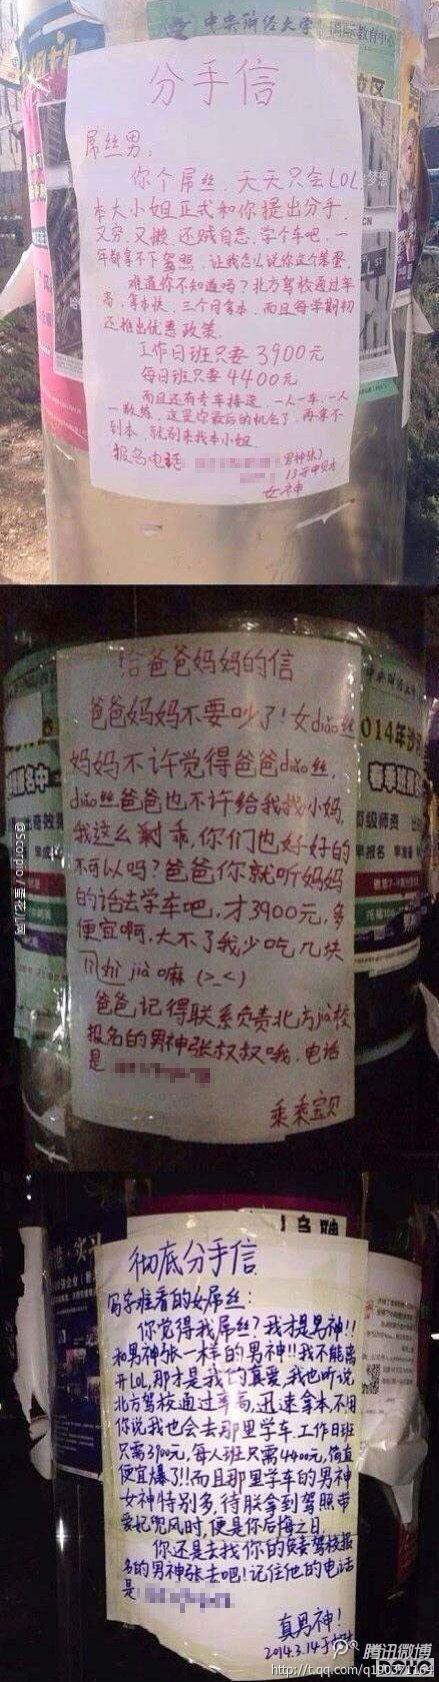 中央财经大学
国际教育中心
分手信
屌丝男：
你个屌丝，天天只会LOL，
本大小姐正式和你提出分手，
又穷，又懒，还贼自恋，学个车吧，一
年都拿不下驾照，让我怎么说你这个笨蛋，
难道你不知道吗？北方驾校通过率
高，拿本快，三个月拿本，而且每学期初
还推出优惠政策。
工作日班只要3900元
每日班只要4400元
而且还有专车接送，一人一车，一人
一教练，这是你最后的机会了，再拿不
到本，就别来找本小姐
报名电话
（男神张）
女神
给爸爸妈妈的信
爸爸妈妈不要吵了！女diǎo丝
妈妈不许觉得爸爸diǎo丝，
diǎo丝爸爸也不许给我找小妈，
我这么乖，你们也好好的
不可以吗？爸爸你就听妈妈
的话去学车吧，才3900元，多
便宜啊，大不了我少吃几块
jià嘛（>_<）
爸爸记得联系负责北方jià校
报名的男神张叔叔哦，电话
是
乘乘宝贝
2014年
春季班
彻底分手信
写字难看的女屌丝：
你觉得我屌丝？我才是男神！！
和男神张一样的男神！！我不能离
开LOL，那才是我的真爱，我也听说
北方驾校通过率高，迅速拿本，不用
你说我也会去那里学车，工作日班
只需3900元，每人班只需4400元，简直
便宜爆了！！而且那里学车的男神
女神特别多，待朕拿到驾照带
爱妃兜风时，便是你后悔之日
你还是去找你的驾校报
名的男神张去吧！记住他的电话
是
真男神！
2014.3.14于
@Scorpio /
腾讯微博
http://t.qq.com/q190371104